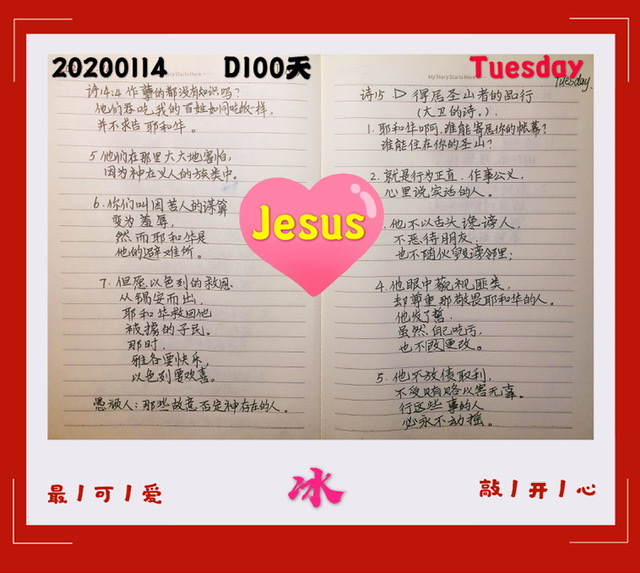 20200114 D100天 Tuesday
My Story Starts Here
Tuesday.
诗14:4 作孽的都没有知识吗?
他们吞吃我的百姓如同吃饭一样,
并不求告耶和华。
5 他们在那里大大地害怕,
因为神在义人的族类中。
6. 你们叫困苦人的谋算
变为羞辱,
然而耶和华是
他的避难所。
7. 但愿以色列的救恩
从锡安而出.
耶和华救回他
被掳的子民。
那时.
雅各要快乐,
以色列要欢喜。
愚顽人:那些故意否定神存在的人。
诗15 ▷ 得居圣山者的品行
(大卫的诗。)
1. 耶和华啊,谁能寄居你的帐幕?
谁能住在你的圣山?
2. 就是行为正直.作事公义,
心里说实话的人。
他不以舌头谗谤人,
不恶待朋友,
也不随伙毁谤邻里;
4. 他眼中藐视匪类,
却尊重那敬畏耶和华的人。
他发了誓,
虽然自己吃亏,
也不更改。
5. 他不放债取利,
不受贿赂以害无辜。
行这些事的人
必永不动摇。
Jesus
最丨可丨爱
冰
敲丨开丨心